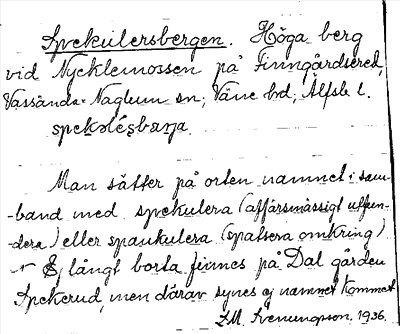 Spekulersbergen. Höga berg
vid Nycklemossen på Finngårdsered,
Vassända-Naglum sn, Väne hd, Älfsb. l.
spekolésbærja
Man sätter på orten namnet i sam-
-band med spekulera (affärsmässigt utfun-
-dera) eller spankulera (spatsera omkring)
Ej långt borta finnes på Dal gården
Spekerud, men därav synes ej namnet kommet
Svenungson, 1936.